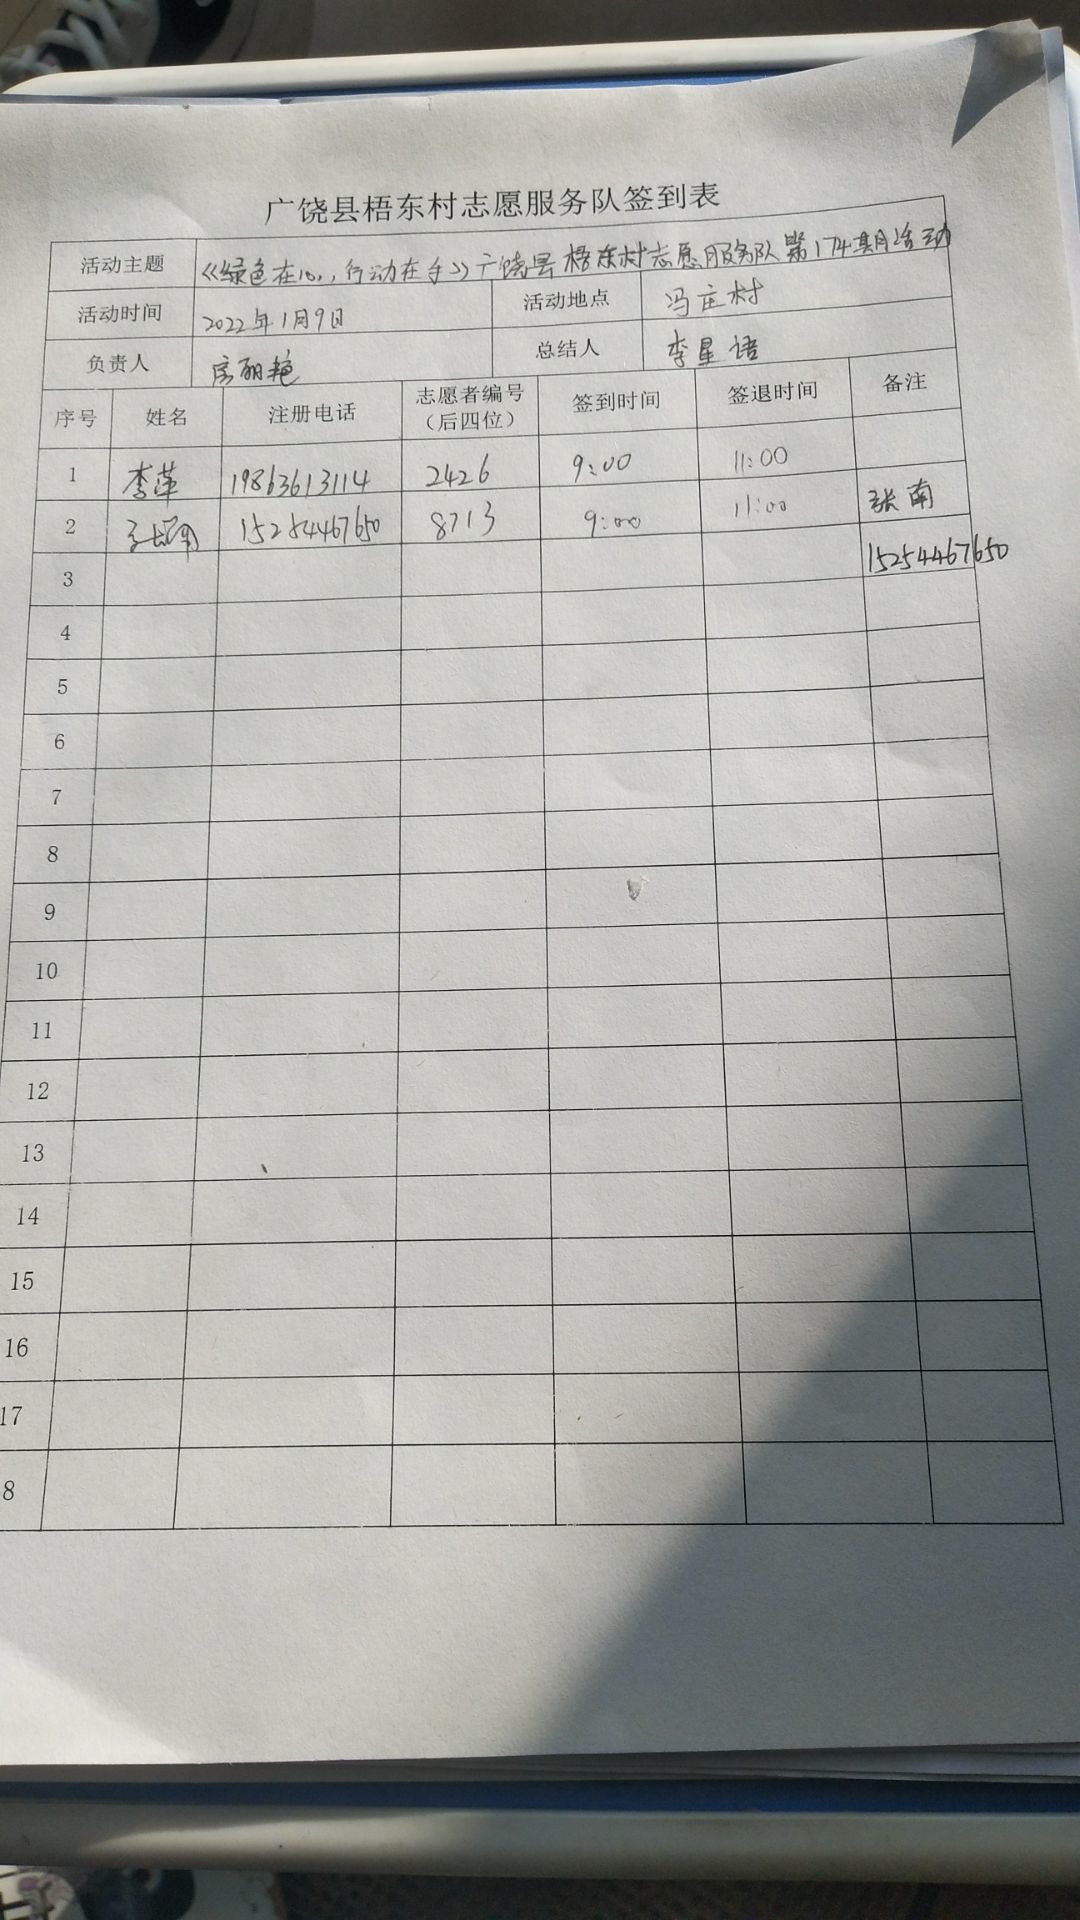 广饶县梧东村志愿服务队签到表
活动主题 《绿色在心,行动在手》广饶县梧东村志愿服务队第174期活动
活动时间 2022年1月9日 活动地点 冯庄村
负责人 房丽艳 总结人 李星语
序号 姓名 注册电话 志愿者编号（后四位） 签到时间 签退时间 备注
1 李萍 19863613114 2426 9:00 11:00
2 15254467650 8713 9:00 11:00 张南
3 15254467650
4
5
6
7
8
9
10
11
12
13
14
15
16
17
8